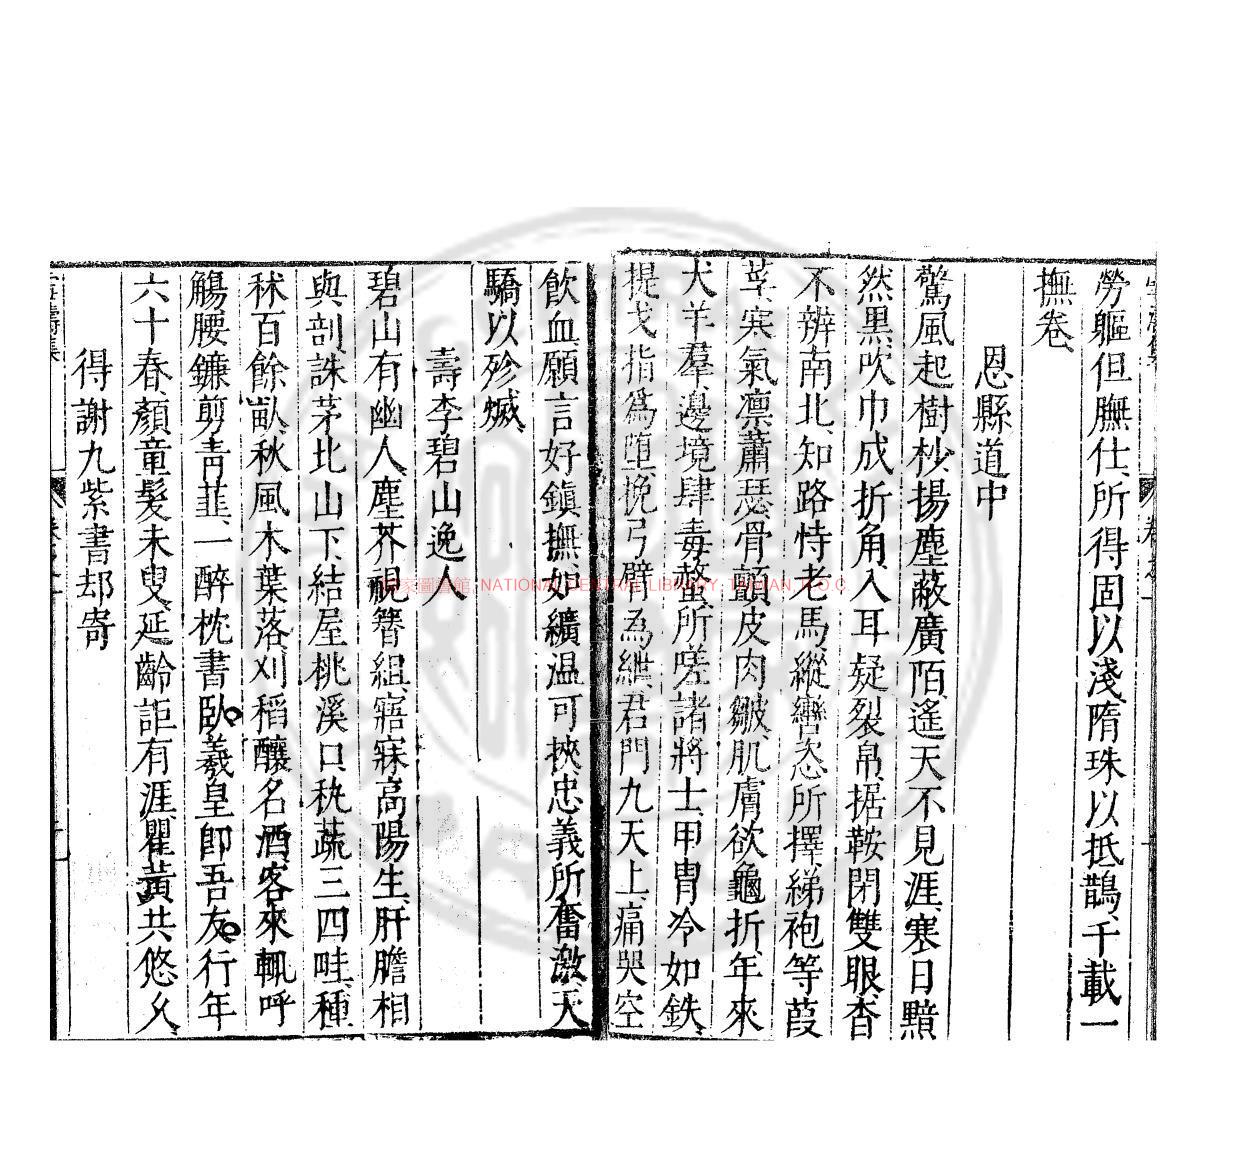 勞軀但膴仕所得固以淺隋珠以抵鵲千載一
撫卷
恩縣道中
驚風起樹杪揚塵蔽廣陌遙天不見涯寒日黯
然黑吹巾成折角入耳疑裂帛据鞍閉雙眼杳
不辨南北知路恃老馬縱轡恣所擇綈袍等葭
莩寒氣凛蕭瑟骨顫皮肉皴肌膚欲龜折年來
犬羊羣邊境肆毒螫所嗟諸將士甲冑冷如鉄
提戈指爲墮挽弓臂為紲君門九天上痛哭空
飲血願言好鎮撫如纊温可挾忠義所奮激天
驕以殄烕
壽李碧山逸人
碧山有幽人塵芥視簪組寤寐高陽生肝膽相
與剖誅茅北山下結屋桃溪口秇蔬三四畦種
秫百餘畝秋風木葉落刈稻釀名酒客來輒呼
觴腰鐮剪青韮一醉枕書臥羲皇即吾友行年
六十春顏童髮未叟延齡詎有涯瞿黃共悠久
得謝九紫書却寄
國家圖書館, NATIONAL CENTRAL LIBRARY, TAIWAN, R.O.C.